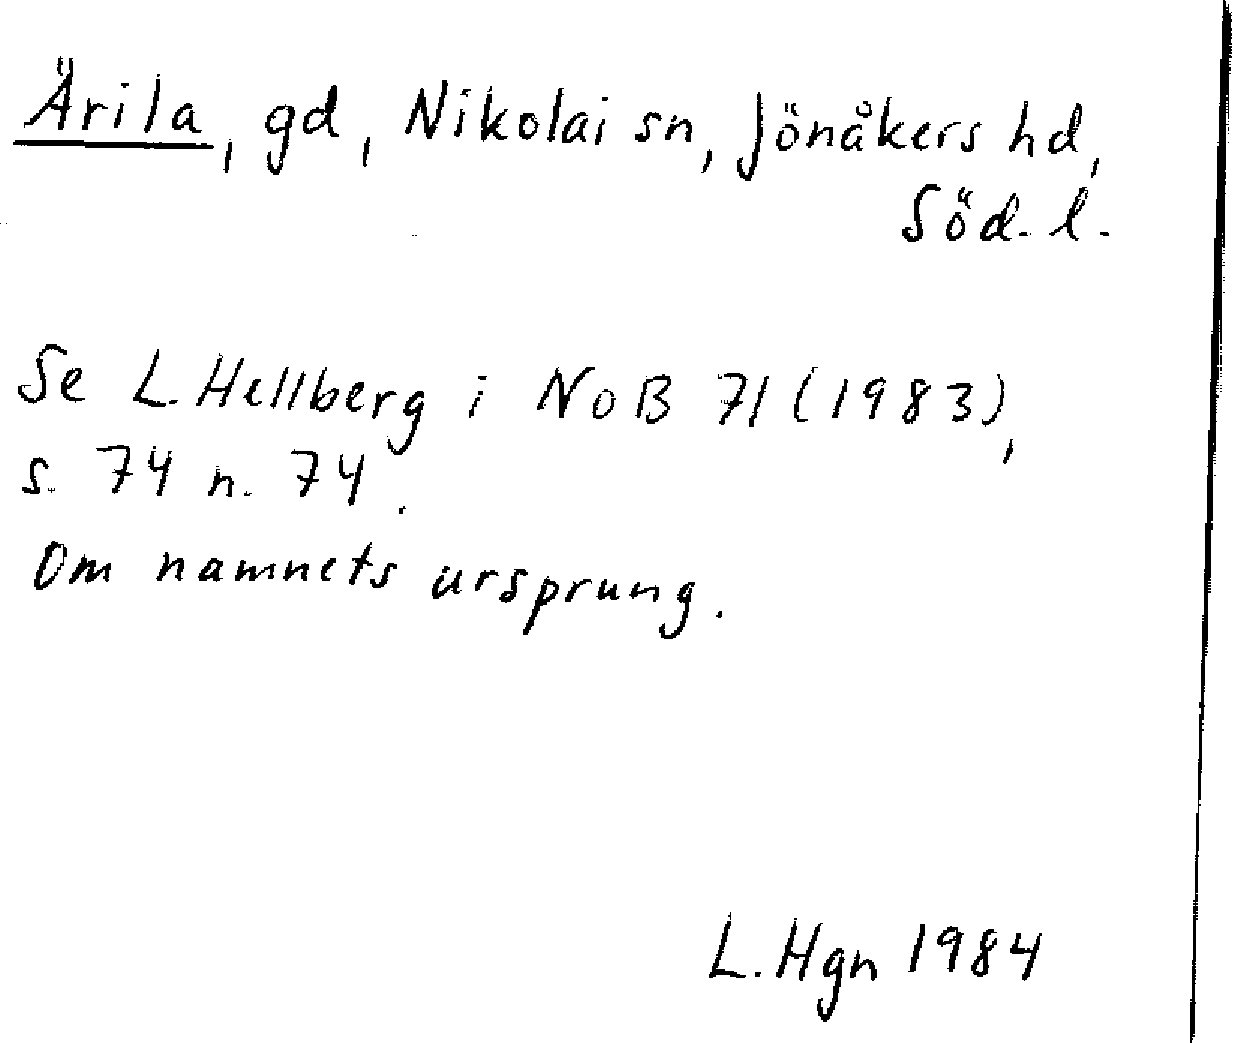 Ärila, gd, Nikolai sn, Jönåkers hd,
Söd. l.
Se L. Hellberg i NoB 71 (1983),
s. 74 n. 74.
Om namnets ursprung.
L. Hgn 1984